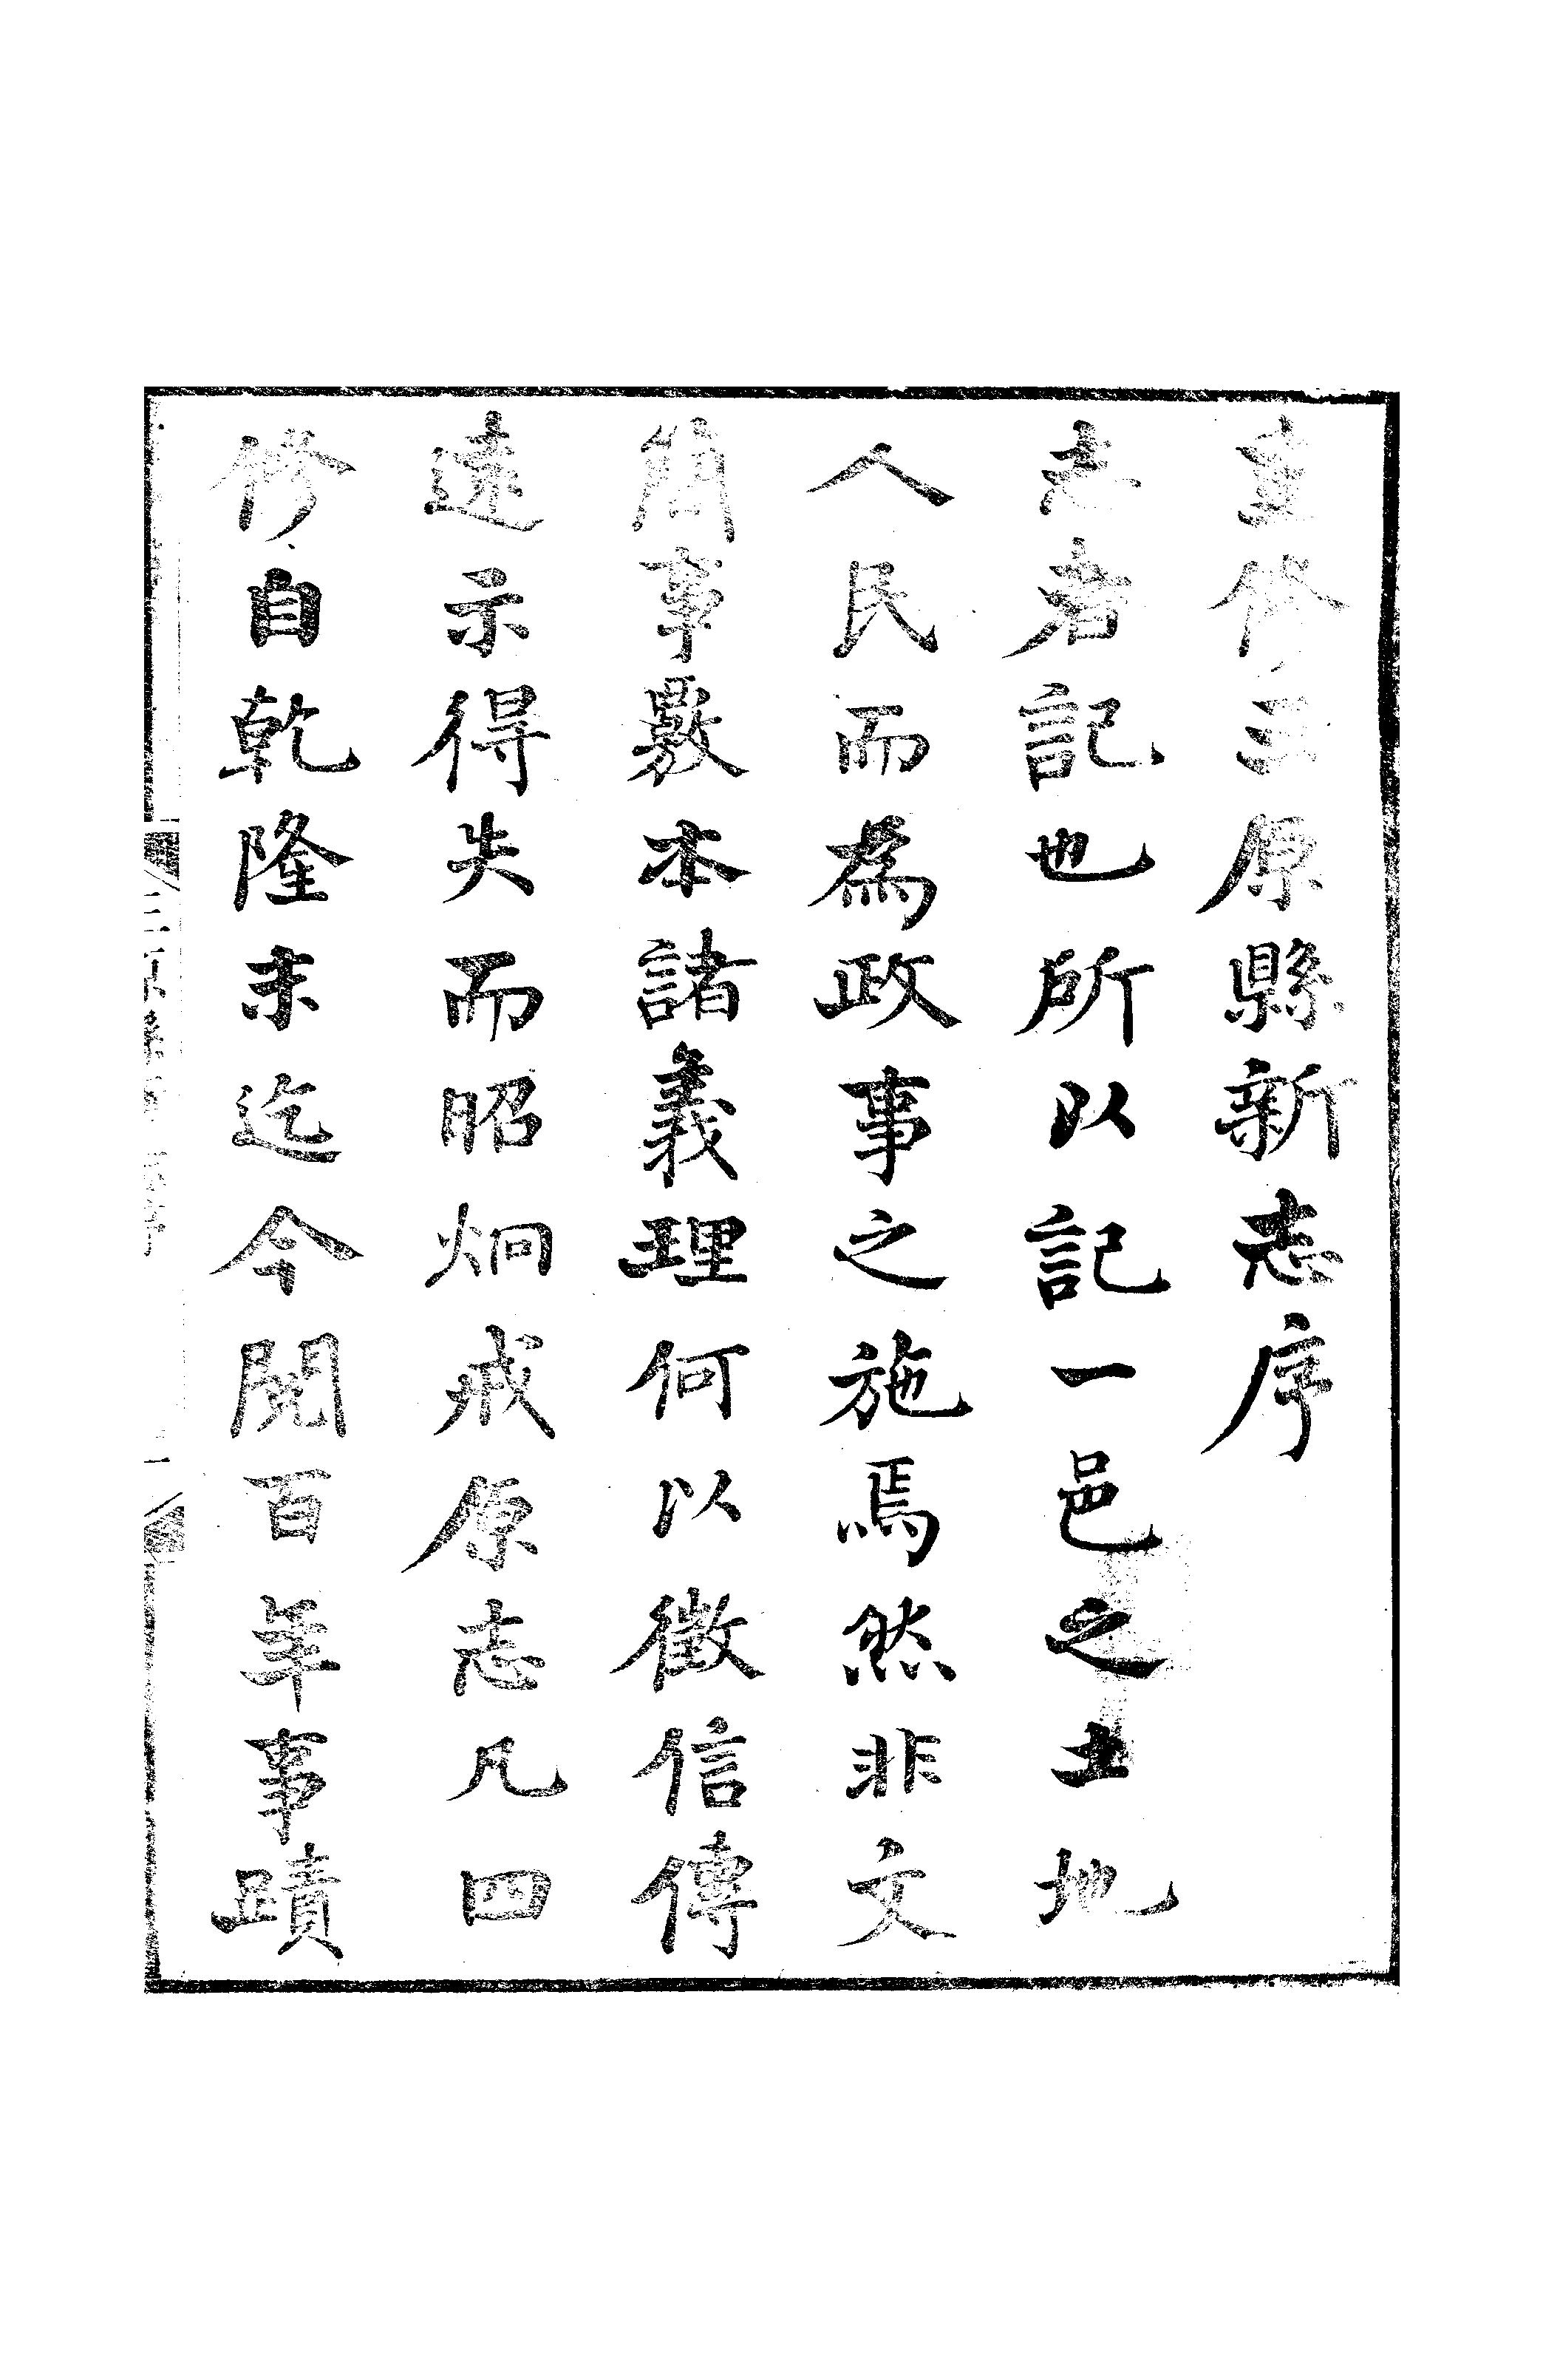 重修三原縣新志序
志者記也所以記一邑之土地
人民而為政事之施焉然非文
簡事覈本諸義理何以徵信傳
遠示得失而昭炯戒原志凡四
修自乾隆末迄今閱百年事蹟
三原縣新志 序 一